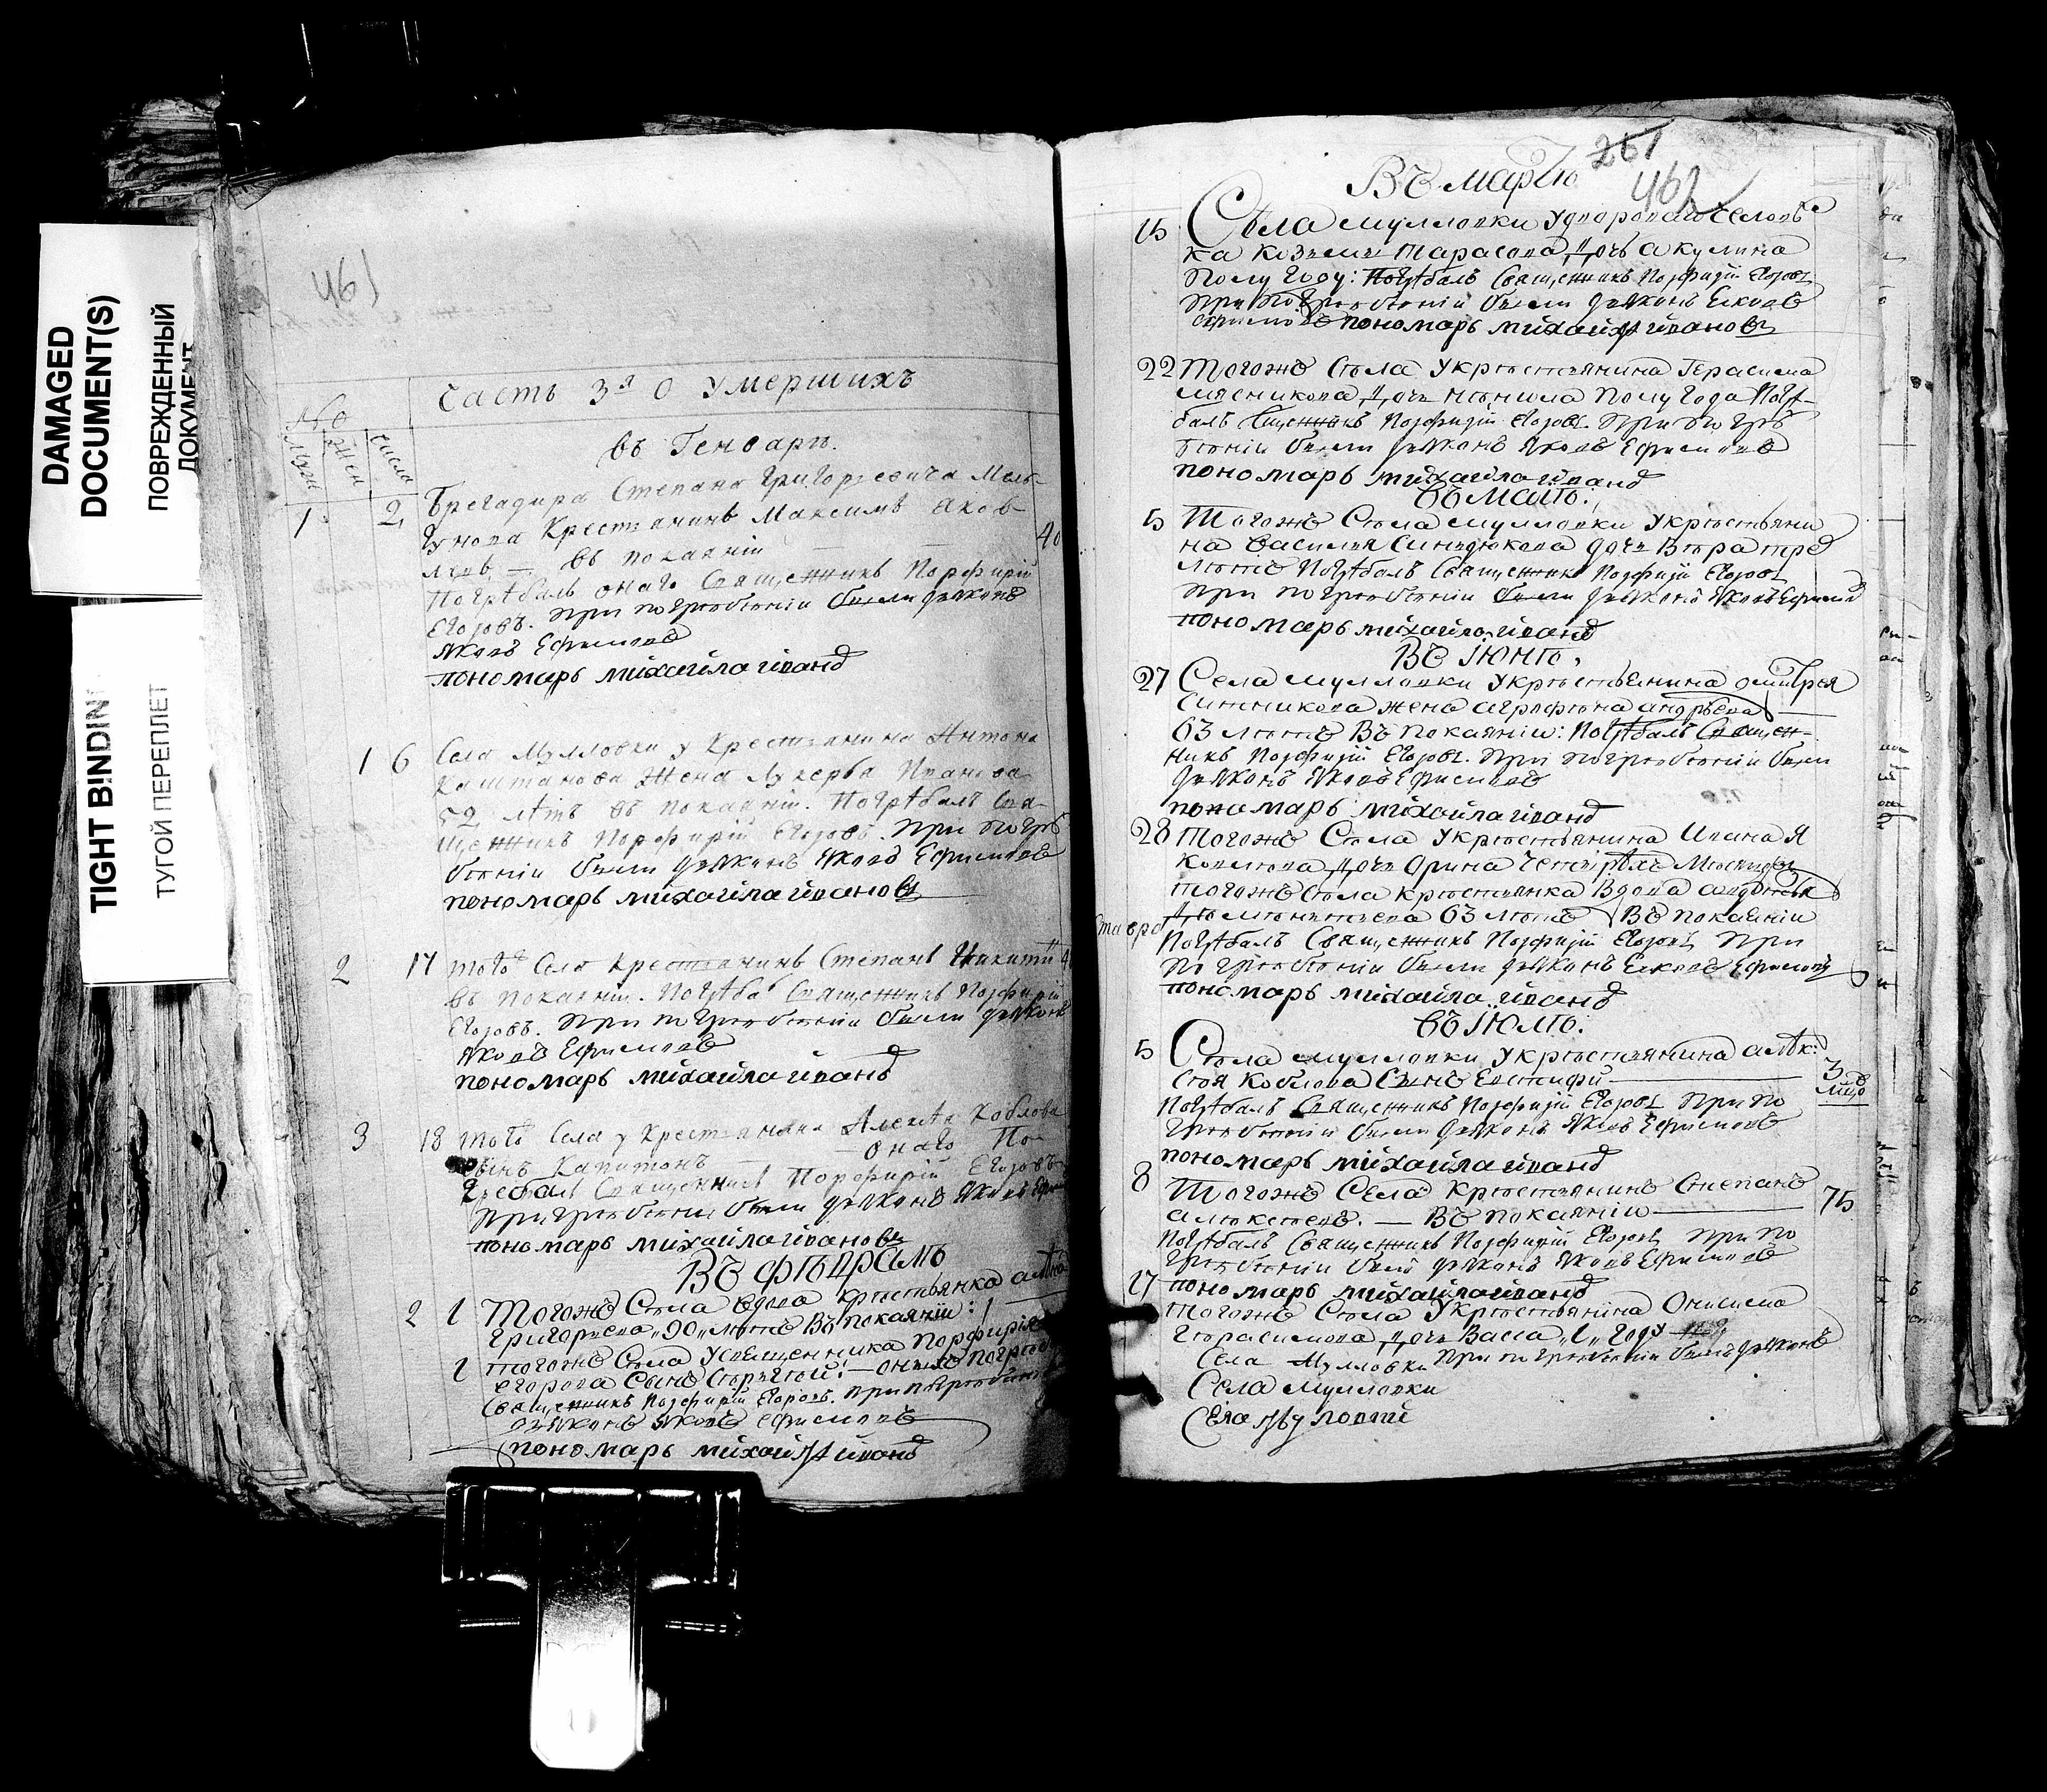 DAMAGED
DOCUMENT(S)
ПОВРЕЖДЕННЫЙ
ДОКУМЕНТ
TIGHT BINDIN
ТУГОЙ ПЕРЕПЛЕТ
461
No
Часть 3я О умершихъ
Муж
Жен
числа
въ Генваръ.
1 2 Брегадира Степана Григорьевича Мель-
гунова Крестьянинъ Максимъ Яков-
левъ — въ покаяніи 40
Погрѣбалъ онаго Священникъ Порфирій
Егоровъ. При погрѣбѣніи были дьяконъ
Яковъ Ефимовъ
пономарь михайла иванов
1 6 Села Мулловки у Крестьянина Антона
Каштанова Жена Лукерья Иванова
52 лѣтъ въ покаяніи. Погрѣбалъ Свя-
щенникъ Порфирій Егоровъ. При погрѣ
бѣніи были дьяконъ Яковъ Ефимовъ
пономарь михайла иванов
2 17 того Села Крестьянинъ Степанъ Никити
въ покаяніи. Погрѣба Священникъ Порфирій
Егоровъ. При погрѣбѣніи были дьяконъ
Яковъ Ефимовъ
пономарь михайла иванов
3 18 того Села у Крестьянина Алексѣя Коблова
сынъ Капитонъ — онаго По-
грѣбалъ Священникъ Порфирій Егоровъ
При грѣбѣніи были дьяконъ Яковъ
пономарь михайла иванов
Въ фѣвралѣ
2 1 Тогожъ Сѣла вдова крѣстьянка
Григорьева „90„ лѣтъ Въ покаяніи:
1 тогожъ Сѣла у Священника Порфирія
Егорова Сынъ
Священникъ Порфирій Егоровъ. При
дьяконъ Яковъ Ефимовъ
пономарь михайла иванов
261
462
Въ мартѣ
15 Сѣла мулловки у дворового человѣ
ка Козьмы Тарасова дочь акулина
Полу году: Погрѣбалъ Священникъ Порфирій Егоровъ
При Погрѣбѣніи были дьяконъ Яковъ
Ефимовъ пономарь михайла иванов
22 Тогожъ Сѣла У крѣстьянина Герасима
мясникова дочь Полу года Погрѣ-
балъ Священникъ Порфирій Егоровъ. При погрѣ
бѣніи были дьяконъ Яковъ Ефимовъ
пономарь михайла иванов
Въ маіѣ:
5 Тогожъ Сѣла мулловки У крѣстьяни
на Василья Синдюкова дочь Вѣра трѣ
лѣтъ Погрѣбалъ Священникъ Порфирій Егоровъ
При погрѣбѣніи были дьяконъ Яковъ Ефимовъ
пономарь михайла иванов
Въ Іюнѣ.
27 Села мулловки У крѣстьянина дмитрея
Синникова жена аграфѣна андрѣева
63 лѣтъ Въ Покаяніи: Погрѣбалъ Священ-
никъ Порфирій Егоровъ. При погрѣбѣніи были
дьяконъ Яковъ Ефимовъ
пономарь михайла иванов
28 Тогожъ Сѣла У крѣстьянина Ивана Я
ковлѣва дочь Орина чѣтырѣхъ
тогожъ Сѣла крѣстьянка Вдова
63 лѣтъ Въ покаяніи
Погрѣбалъ Священникъ Порфирій Егоровъ При
По грѣбѣніи были дьяконъ Яковъ Ефимовъ
пономарь михайла иванов
Въ Іюлѣ:
5 Сѣла мулловки У крѣстьянина алѣк:
сѣя Коблова Сынъ Евстифи 3
Погрѣбалъ Священникъ Порфирій Егоровъ При по
грѣбѣніи были дьяконъ Яковъ Ефимовъ
пономарь михайла иванов
8 Тогожъ Села крѣстьянинъ Степанъ
алѣксѣевъ. — Въ покаяніи 75
Погрѣбалъ Священникъ Порфирій Егоровъ При по
грѣбѣніи были дьяконъ Яковъ Ефимовъ
пономарь михайла иванов
17 тогожъ Сѣла У крѣстьянина Онисима
Гѣрасимова дочь Васса „1„ Году
Села Мулловки При погрѣбѣніи были дьяконъ
Села мулловки
Села